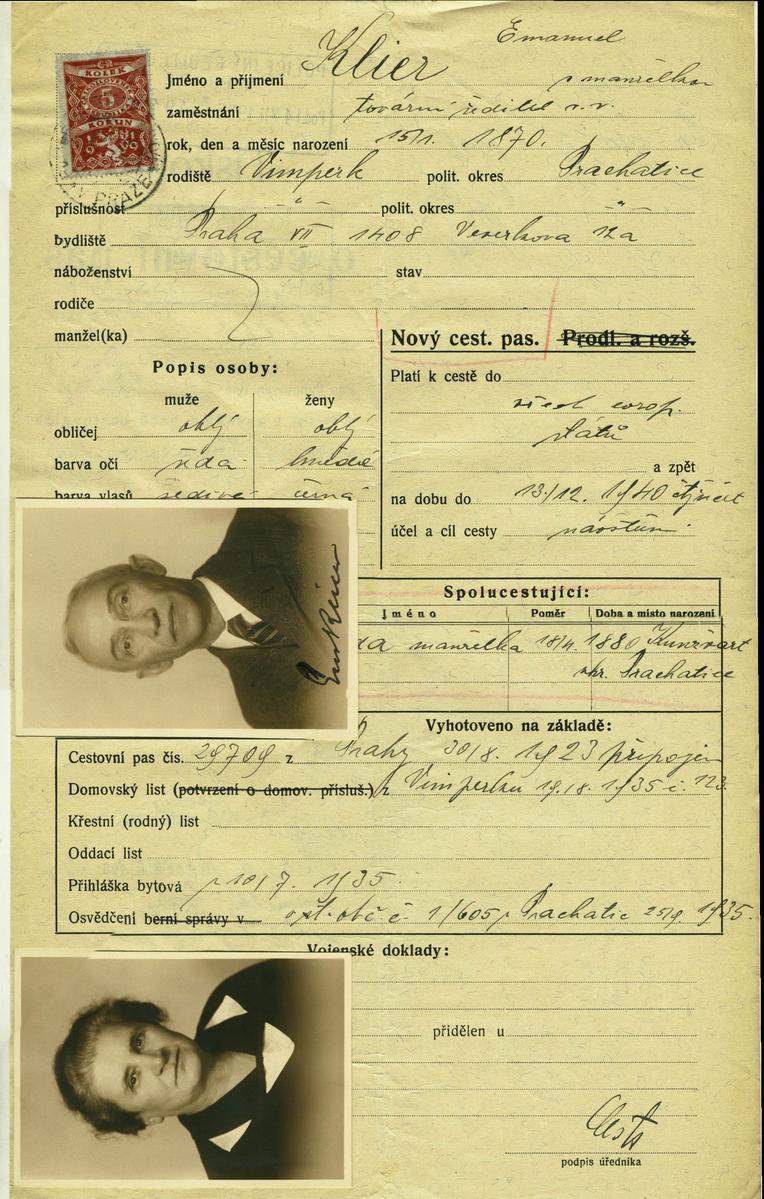 Emanuel
Jméno a příjmení Klier s manželkou
zaměstnání tovární ředitel v. v.
rok, den a měsíc narození 15/1. 1870.
rodiště Vimperk polit. okres Prachatice
příslušnost " polit. okres "
bydliště Praha VII 1408 Veverkova 12a
náboženství stav
rodiče
manžel(ka)
Nový cest. pas. Prodl. a rozš.
Popis osoby:
muže ženy
obličej oblý oblý
barva očí šedá hnědé
barva vlasů šedivé černá
Platí k cestě do
všech evrop.
států
a zpět
na dobu do 13./12. 1940
účel a cíl cesty návštěva
KOLEK
5
KORUN
1919
Spolucestující:
Jméno Poměr Doba a místo narození
manželka 18/4. 1880 Kunžvart
okr. Prachatice
Vyhotoveno na základě:
Cestovní pas čís. 29709 z Prahy 30/8. 1923 připojen
Domovský list (potvrzení o domov. přísluš.) z Vimperku 19./8. 1935 č. 123.
Křestní (rodný) list
Oddací list
Přihláška bytová z 10/7. 1935.
Osvědčení berní správy v o st. obč. č. 1/605 z Prachatic 25/9. 1935.
Vojenské doklady:
přidělen u
podpis úředníka